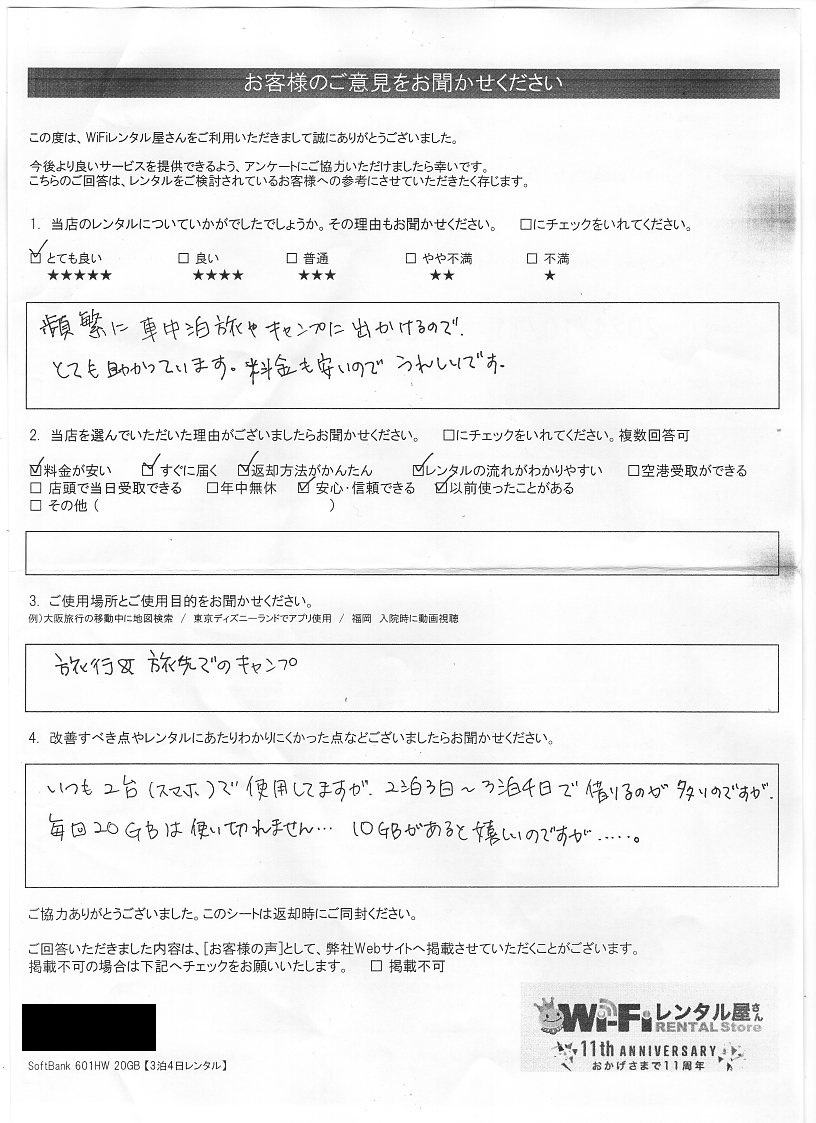 お客様のご意見をお聞かせください
この度は、WiFiレンタル屋さんをご利用いただきまして誠にありがとうございました。
今後より良いサービスを提供できるよう、アンケートにご協力いただけましたら幸いです。
こちらのご回答は、レンタルをご検討されているお客様への参考にさせていただきたく存じます。
1. 当店のレンタルについていかがでしたでしょうか。その理由もお聞かせください。 □にチェックをいれてください。
☑ とても良い □ 良い □ 普通 □ やや不満 □ 不満
★★★★★ ★★★★ ★★★ ★★ ★
頻繁に車中泊旅やキャンプに出かけるので、
とても助かっています。料金も安いので うれしいです。
2. 当店を選んでいただいた理由がございましたらお聞かせください。 □にチェックをいれてください。複数回答可
☑料金が安い ☑すぐに届く ☑返却方法がかんたん ☑レンタルの流れがわかりやすい □空港受取ができる
□ 店頭で当日受取できる □年中無休 ☑ 安心・信頼できる ☑以前使ったことがある
□ その他 ( )
3. ご使用場所とご使用目的をお聞かせください。
例)大阪旅行の移動中に地図検索 / 東京ディズニーランドでアプリ使用 / 福岡 入院時に動画視聴
旅行& 旅先でのキャンプ
4. 改善すべき点やレンタルにあたりわかりにくかった点などございましたらお聞かせください。
いつも2台(スマホ)で使用してますが、2泊3日～3泊4日で借りるのが多いのですが、
毎回20GBは使い切れません… 10GBがあると嬉しいのですが……。
ご協力ありがとうございました。このシートは返却時にご同封ください。
ご回答いただきました内容は、[お客様の声]として、弊社Webサイトへ掲載させていただくことがございます。
掲載不可の場合は下記へチェックをお願いいたします。 □ 掲載不可
Wi-Fiレンタル屋さん
RENTAL Store
11th ANNIVERSARY
おかげさまで11周年
SoftBank 601HW 20GB【3泊4日レンタル】